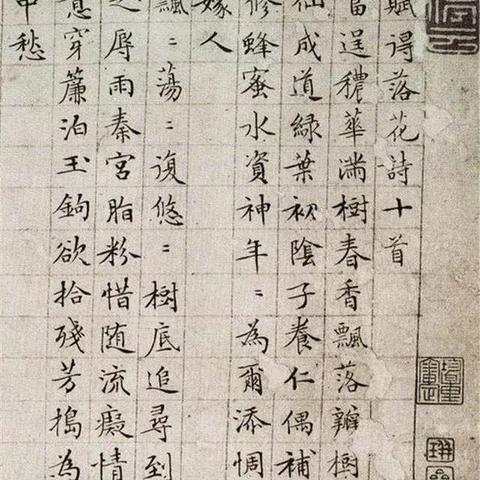 賦得落花詩十首
富逞穠華滿樹春香飄落瓣樹
仙成道綠葉初陰子養仁偶補
修蜂蜜水資神年〻為爾添惆
嫁人
飄〻蕩〻復悠〻樹底追尋到
辱雨秦宮脂粉惜随流癡情
意穿簾泊玉鉤欲拾殘芳搗為
中愁